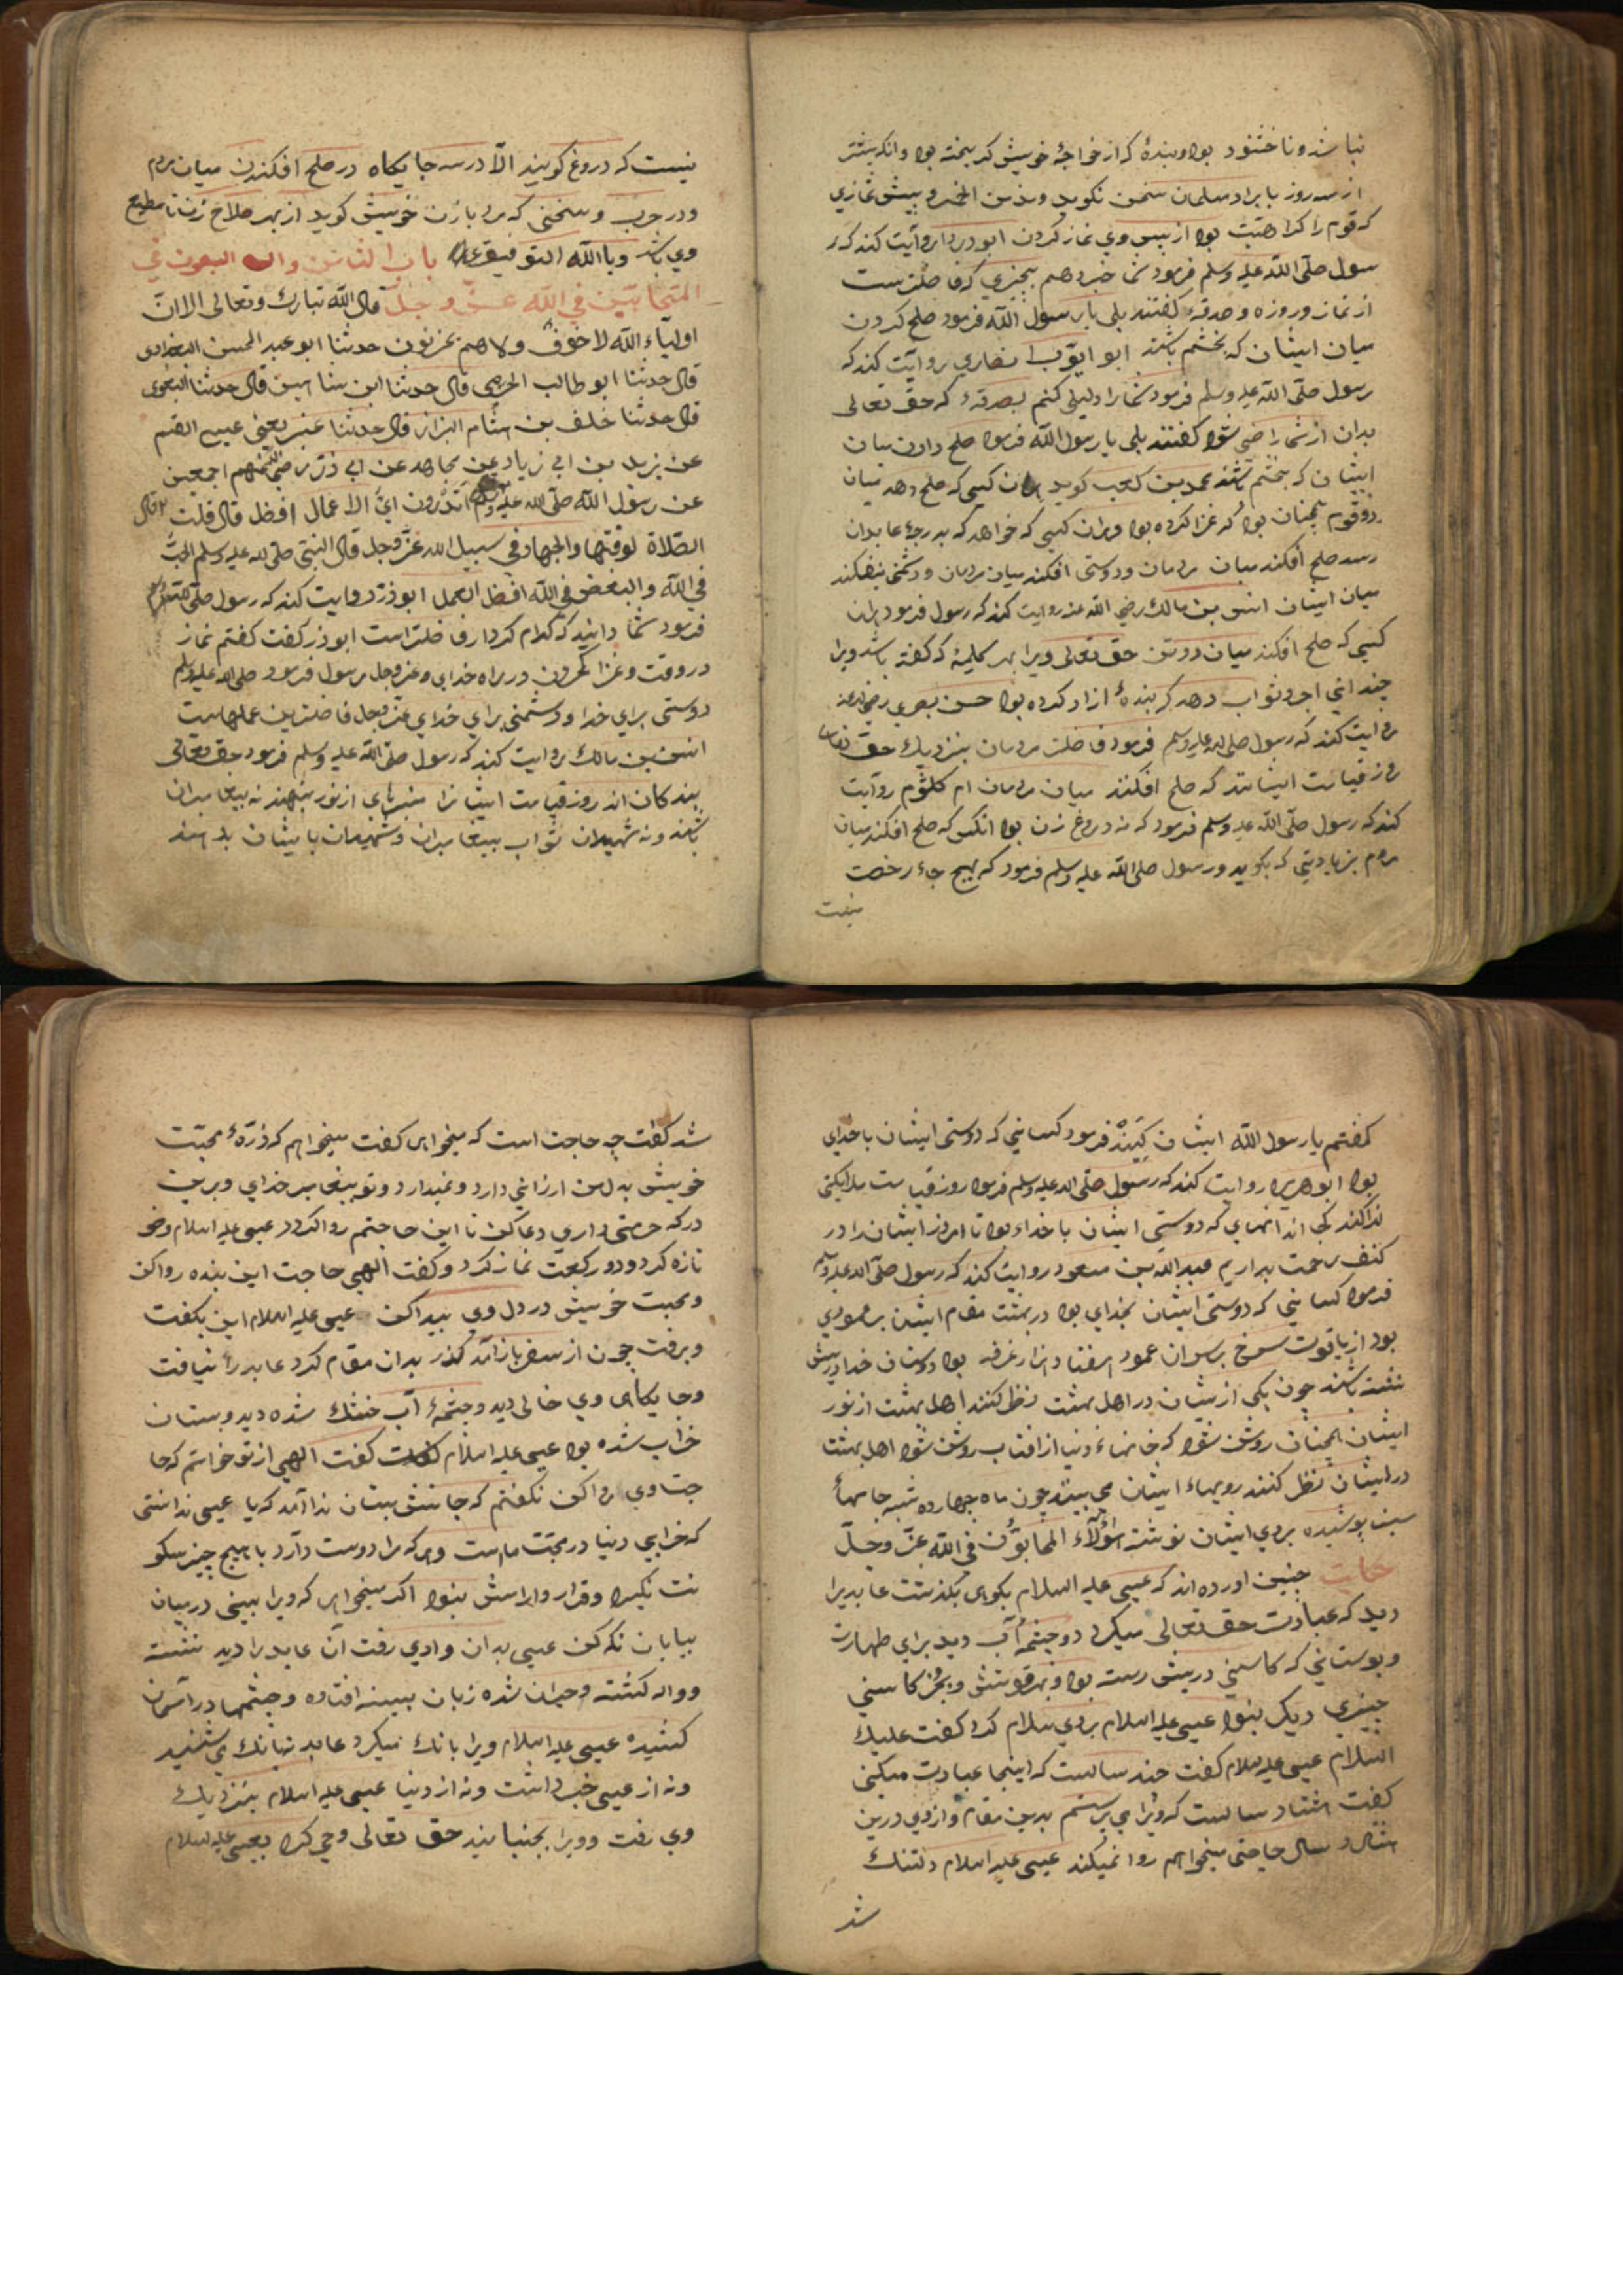 نباشد و ناخشنود بود و بندهٔ که از خواجهٔ خویش کریخته بود و انکه بیشتر
از سه روز با برادر مسلمان سخن نکوید و مدمن الخمر و پیش نمازی
که قوم را کراهیت بود از پس وی نماز کردن ابو دردا روایت کند که ر
سول صلّی اللّه علیه وسلم فرمود شما خبر دهم بچیزی که فاضلترست
از نماز و روزه و صدقه کفتند بلی یا رسول اللّه فرمود صلح کردن
میان ایشان که بخشم باشند ابو ایّوب انصاری روایت کند که
رسول صلّی اللّه علیه وسلم فرمود شما را دلیلی کنم بصدقهٔ که حق تعالی
بدان از شما راضی شود کفتند بلی یا رسول اللّه فرمود صلح دادن میان
ایشان که بخشم باشند محمد بن کعب کوید ان کسی که صلح دهد میان
دو قوم همچنان بود که غزا کرده بود و بران کسی که خواهد که بدرجهٔ عابدان
رسد صلح افکند میان مردمان و دوستی افکند میان مردمان و دشمنی نیفکند
میان ایشان انس بن مالک رضی اللّه عنه روایت کند که رسول فرمود بران
کسی که صلح افکند میان دو تن حق تعالی ویرا بهر کلیمهٔ که کفته باشد ویرا
چندانی اجر و ثواب دهد که بندهٔ ازاد کرده بود حسن بصری رضی الله عنه
روایت کند که رسول صلی الله علیه وسلم فرمود فاضلتر مردمان بنزدیک حق تعالی
روز قیامت ایشانند که صلح افکنند میان مردمان ام کلثوم روایت
کند که رسول صلّی اللّه علیه وسلم فرمود که نه دروغ زن بود انکس که صلح افکند میان
مردم بزیادتی که بکوید و رسول صلی اللّه علیه وسلم فرمود که بهیچ جاء رخصت
نیست
نیست که دروغ کویند الّا در سه جایکاه در صلح افکندن میان مردم
و در حرب و سخنی که مرد با زن خویش کوید از بهر صلاح زن تا مطیع
وی باشد و باللّه التوفیق باب الثامن والـ البعون فی
المتحابّین فی اللّه عزّ و جلّ قال اللّه تبارک و تعالی الا انّ
اولیآء اللّه لا خوفٌ ولا هم یحزنون حدثنا ابو عبد الحسن البغدادی
قال حدثنا ابو طالب قال حدثنا ابن شاهین قال حدثنا البغوی
قال حدثنا خلف بن هشام البزاز قال حدثنا عنبر یعنی عیسی القسم
عن یزید بن ابی زیاد عن مجاهد عن ابی ذرّ رضی اللّه عنهم اجمعین
عن رسول اللّه صلّی الله علیه وسلم اتدرون ایّ الاعمال افضل قال قلت قال
الصّلاة لوقتها والجهاد فی سبیل الله عزّوجل قال النبی صلّی لله علیه وسلم الحبّ
فی اللّه والبغض فی اللّه افضل العمل ابوذر روایت کند که رسول صلّی
فرمود شما دانید که کدام کردار فاضلتر است ابوذر کفت کفتم نماز
در وقت و غزا کردن در راه خدای عز وجل رسول فرمود صلی الله علیه وسلم
دوستی برای خدا و دشمنی برای خدای عزوجل فاضلترین عملهاست
انس بن مالک روایت کند که رسول صلّی اللّه علیه وسلم فرمود حق تعالی
بندکان اند روز قیامت ایشانرا منبرهای از نور بنهند نه پیغامبران
باشند و نه شهیدان ثواب پیغامبران و شهیدان بایشان بدهند
کفتم یا رسول اللّه ایشان کیند فرمود کسانی که دوستی ایشان با خدای
بود ابو هریره روایت کند که رسول صلّی الله علیه وسلم فرمود روز قیامت ملایکی
ندا کند کجا اند انهای که دوستی ایشان با خداء بود تا امروز ایشان را در
کنف رحمت بداریم عبد اللّه بن مسعود روایت کند که رسول صلّی الله علیه وسلم
فرمود کسانی که دوستی ایشان بخدای بود در بهشت مقام ایشان بر عمودی
بود از یاقوت سرخ بر سر ان عمود هفتاد هزار غرفه بود دوستان خدا در پیش
نشسته باشند چون یکی از یشان در اهل بهشت نظر کنند اهل بهشت از نور
ایشان همچنان روشن شود که خانهاء دنیا از افتاب روشن شود اهل بهشت
در ایشان نظر کنند رویهاء ایشان می بینند چون ماه چهارده شبه جامهاء
سبز پوشیده بر روی ایشان نوشته هؤلاء المتحابّون فی اللّه عزّ وجلّ
حکایت چنین اورده اند که عیسی علیه السلام بکوهی بکذشت عابدیرا
دید که عبادت حق تعالی میکرد و چشمهٔ آب دید برای طهارت
و بوستانی که کاسنی درپیش رسته بود و بهر قوتش و بجز کاسنی
چیزی دیکر نبود عیسی علیه السلام بروی سلام کرد کفت علیک
السلام عیسی علیه سلام کفت چند سالست که اینجا عبادت میکنی
کفت هشتاد سالست که ویرا می پرستم بدین مقام و از وی درین
هشتاد سال حاجتی میخواهم روا نمیکند عیسی علیه السلام دلتنک
شد
شد کفت چه حاجت است که میخواهی کفت میخواهم که ذرّهٔ محبّت
خویش بدل من ارزانی دارد و نمیدارد و تو پیغامبر خدای و برین
درکه حرمتی داری دعا کن تا این حاجتم روا کردد عیسی علیه السلام وضو
تازه کرد و دو رکعت نماز کرد و کفت الهی حاجت این بنده روا کن
و محبت خویش در دل وی پیدا کن عیسی علیه السلام این بکفت
و برفت چون از سفر باز آمد کذر بدان مقام کرد عابد را نیافت
و جایکاه وی خالی دید و چشمهٔ آب خشک شده دید و بستان
خراب شده بود عیسی علیه السلام کفت الهی از تو خواستم که حا
جت وی روا کن نکفتم که جانش بستان ندا آمد که یا عیسی ندانستی
که خرابی دنیا در محبّت ماست و هر که مرا دوست دارد با هیچ چیز سکو
نت نکیرد و قرار و ارامش نبود اکر میخواهی که ویرا ببینی در میان
بیابان نکه کن عیسی بدان وادی رفت آن عابد را دید نشسته
و واله کشته و حیران شده زبان بسینه افتاده و چشمها در آسمان
کشیده عیسی علیه السلام ویرا بانک میکرد عابد نه بانک می شنید
و نه از عیسی خبر داشت و نه از دنیا عیسی علیه السلام بنزدیک
وی رفت و ویرا بجنبانید حق تعالی وحی کرد بعیسی علیه السلام